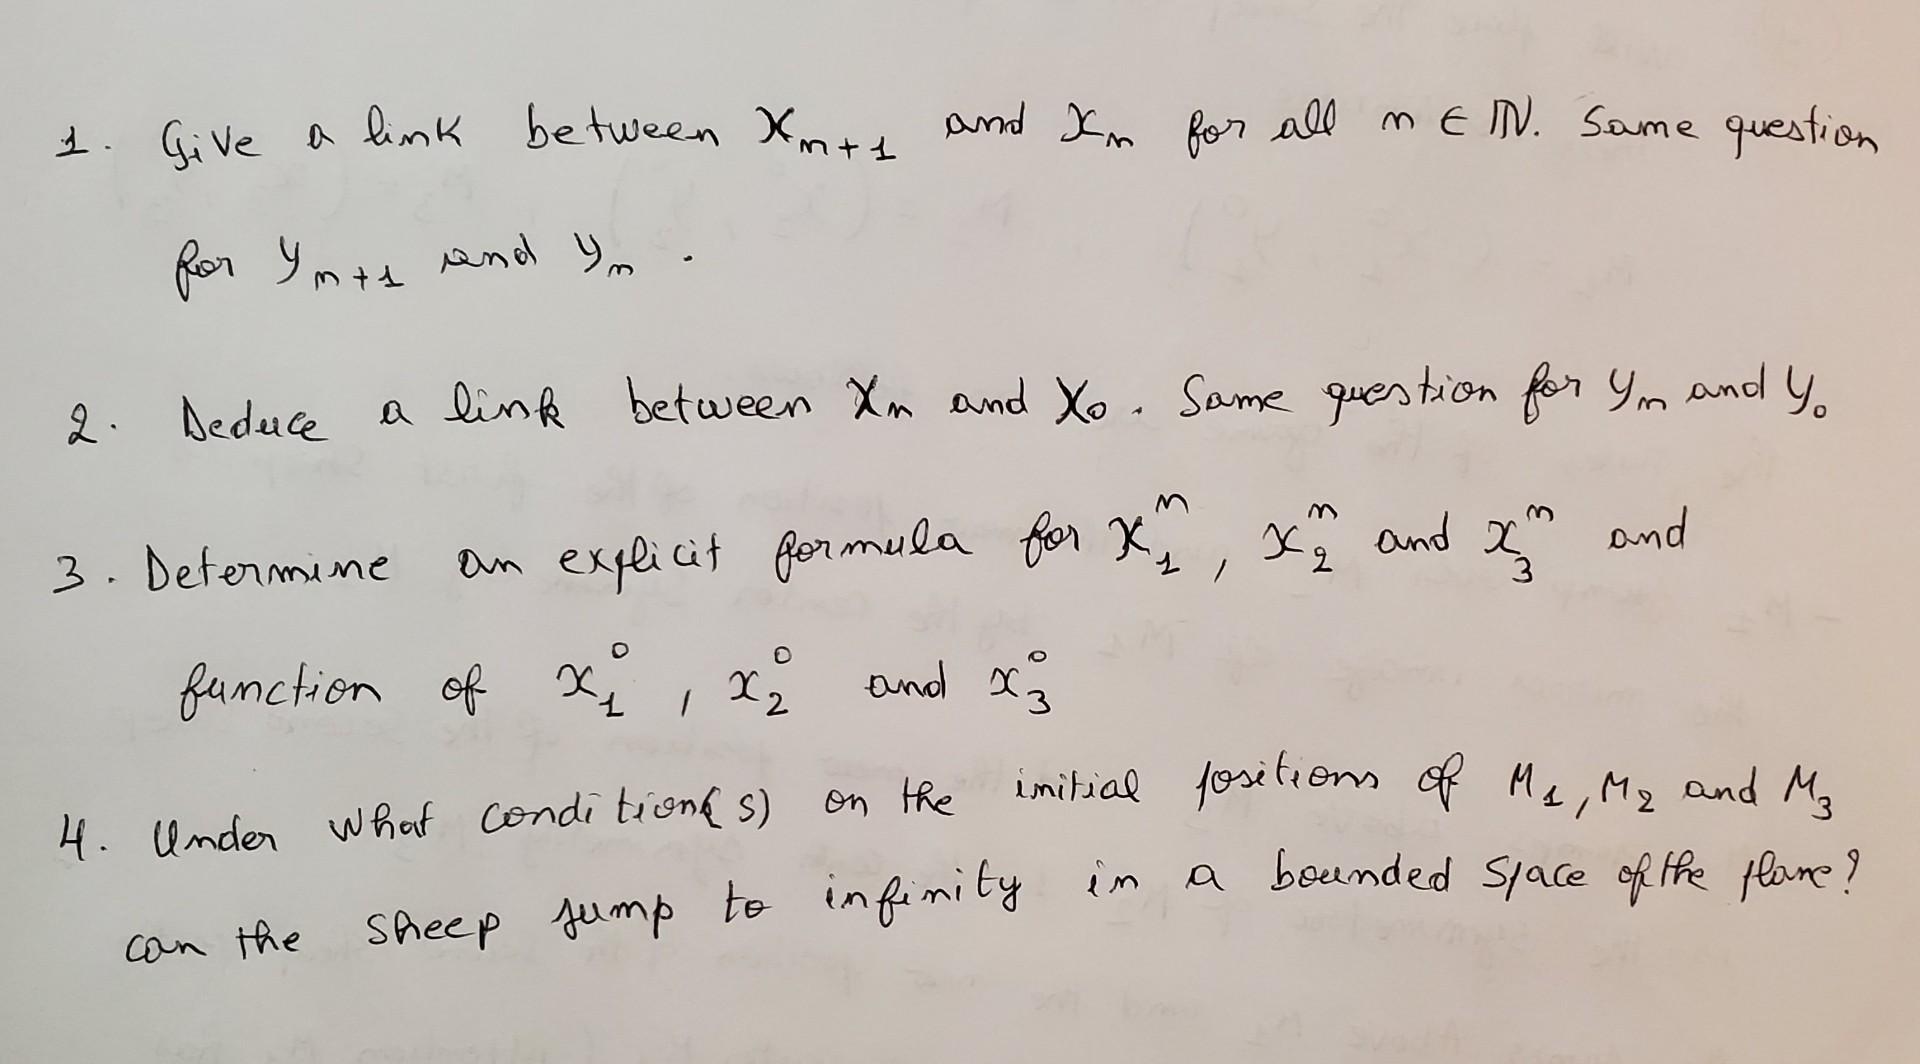 1. Give a link between X_{n+1} and X_n for all n ∈ ℕ. Same question
for Y_{n+1} and Y_n.
2. Deduce a link between X_n and X_0. Same question for Y_n and Y_0
3. Determine an explicit formula for x_1^n, x_2^n and x_3^n and
function of x_1^0, x_2^0 and x_3^0
4. Under what condition(s) on the initial positions of M_1, M_2 and M_3
can the sheep jump to infinity in a bounded space of the plane?